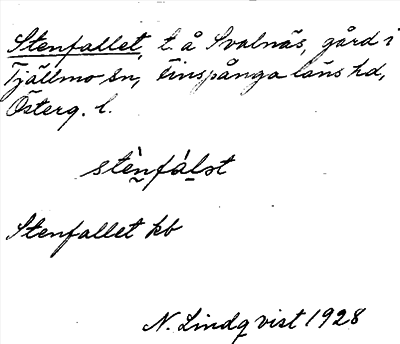 Stenfallet, t. å Svalnäs, gård i
Tjällmo sn, Finspånga läns hd,
Österg. l.
stènfálət
Stenfallet kb
N. Lindqvist 1928